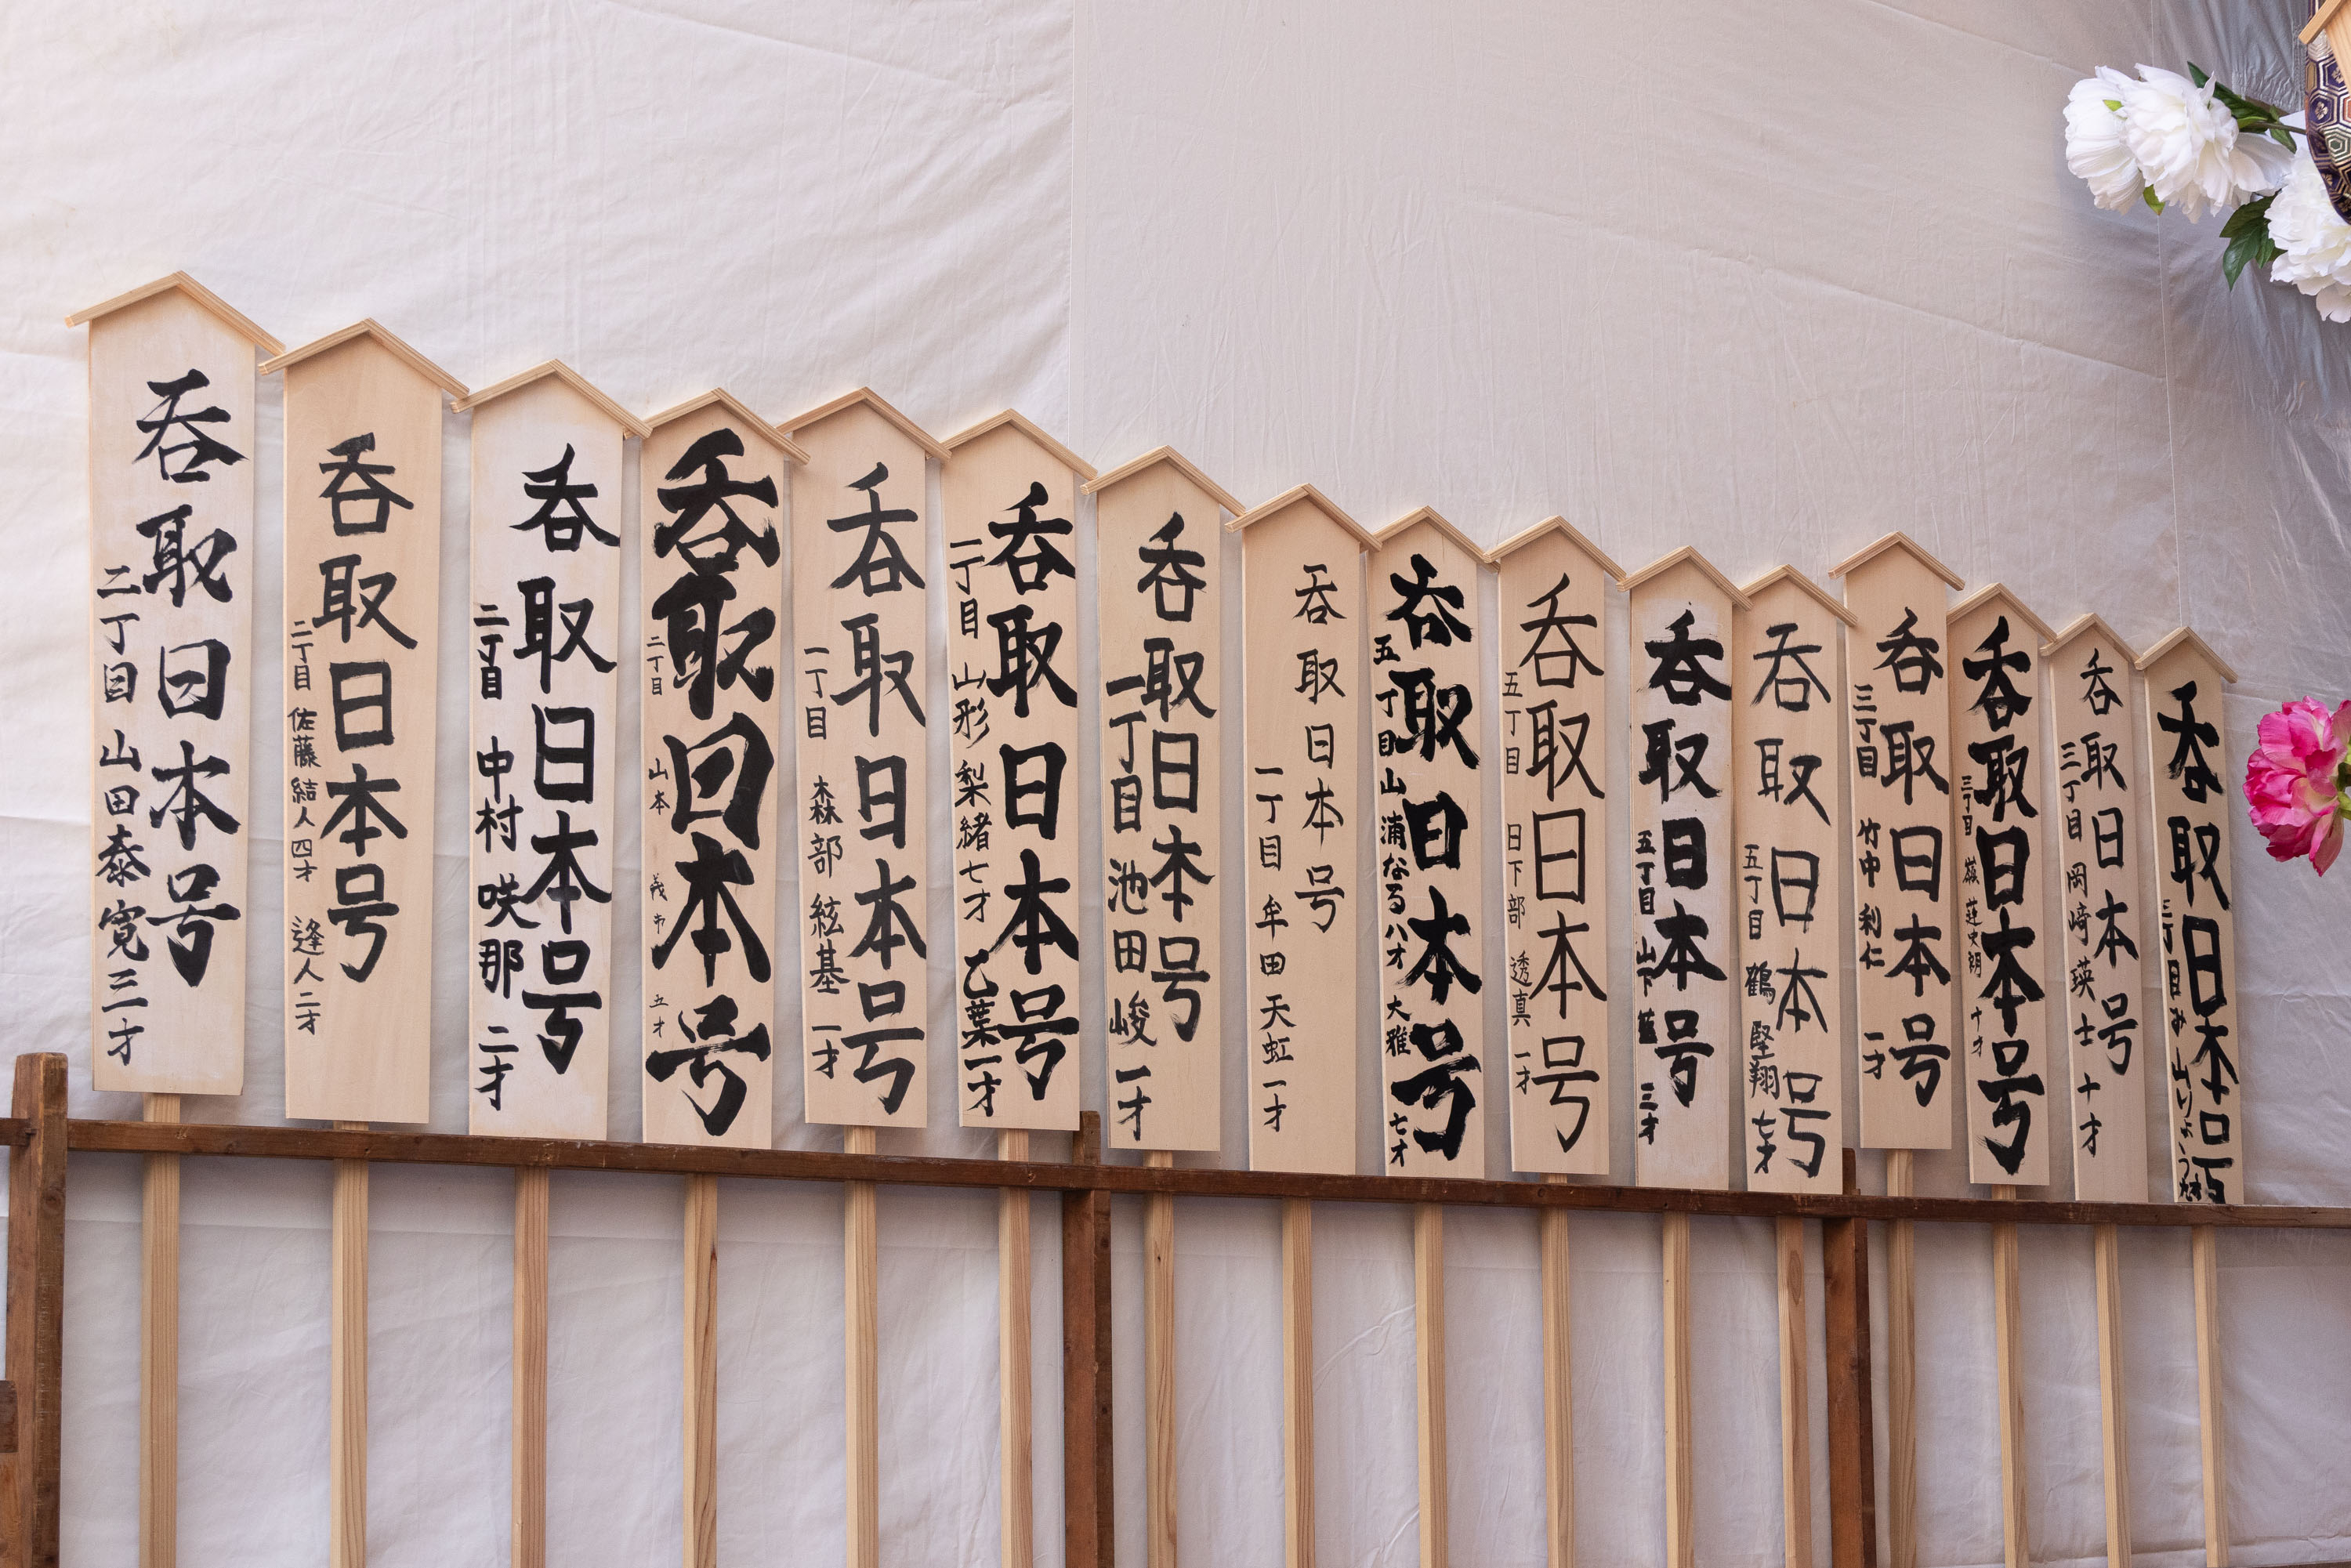 呑取日本号
二丁目 山田泰寛 三才
呑取日本号
二丁目 佐藤結人 四才 逢人 二才
呑取日本号
二丁目 中村咲那 二才
呑取日本号
二丁目 山本 義 五才
呑取日本号
一丁目 森部 絃基 一才
呑取日本号
一丁目 山形 梨緒 七才 乙葉 一才
呑取日本号
一丁目 池田峻 一才
呑取日本号
一丁目 牟田天虹 一才
呑取日本号
五丁目 山浦なる 八才 大雅 七才
呑取日本号
五丁目 日下部 透真 一才
呑取日本号
五丁目 山下 三才
呑取日本号
五丁目 鶴 堅翔 七才
呑取日本号
三丁目 竹中 利仁 一才
呑取日本号
三丁目 十才
呑取日本号
三丁目 岡崎瑛士 十才
呑取日本号
三丁目